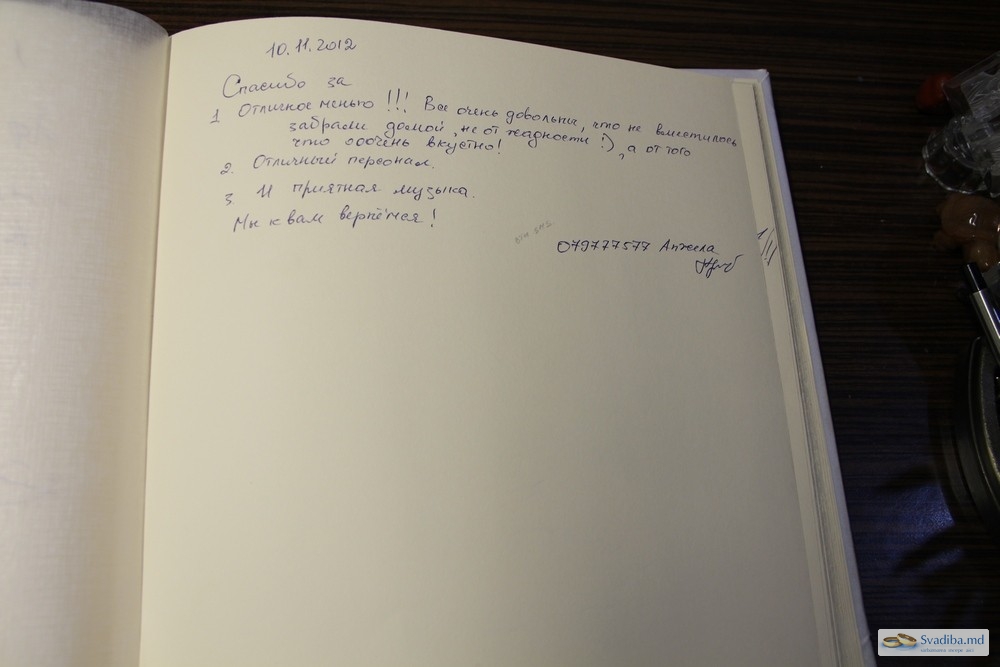 10.11.2012
Спасибо за
1 Отличное менью !!! Все очень довольны, что не вместилось
забрали домой, не от жадности :), а от того
что ооочень вкустно!
2. Отличный персонал.
3. И приятная музыка.
Мы к вам вернёмся!
079777577 Анжела
Svadiba.md